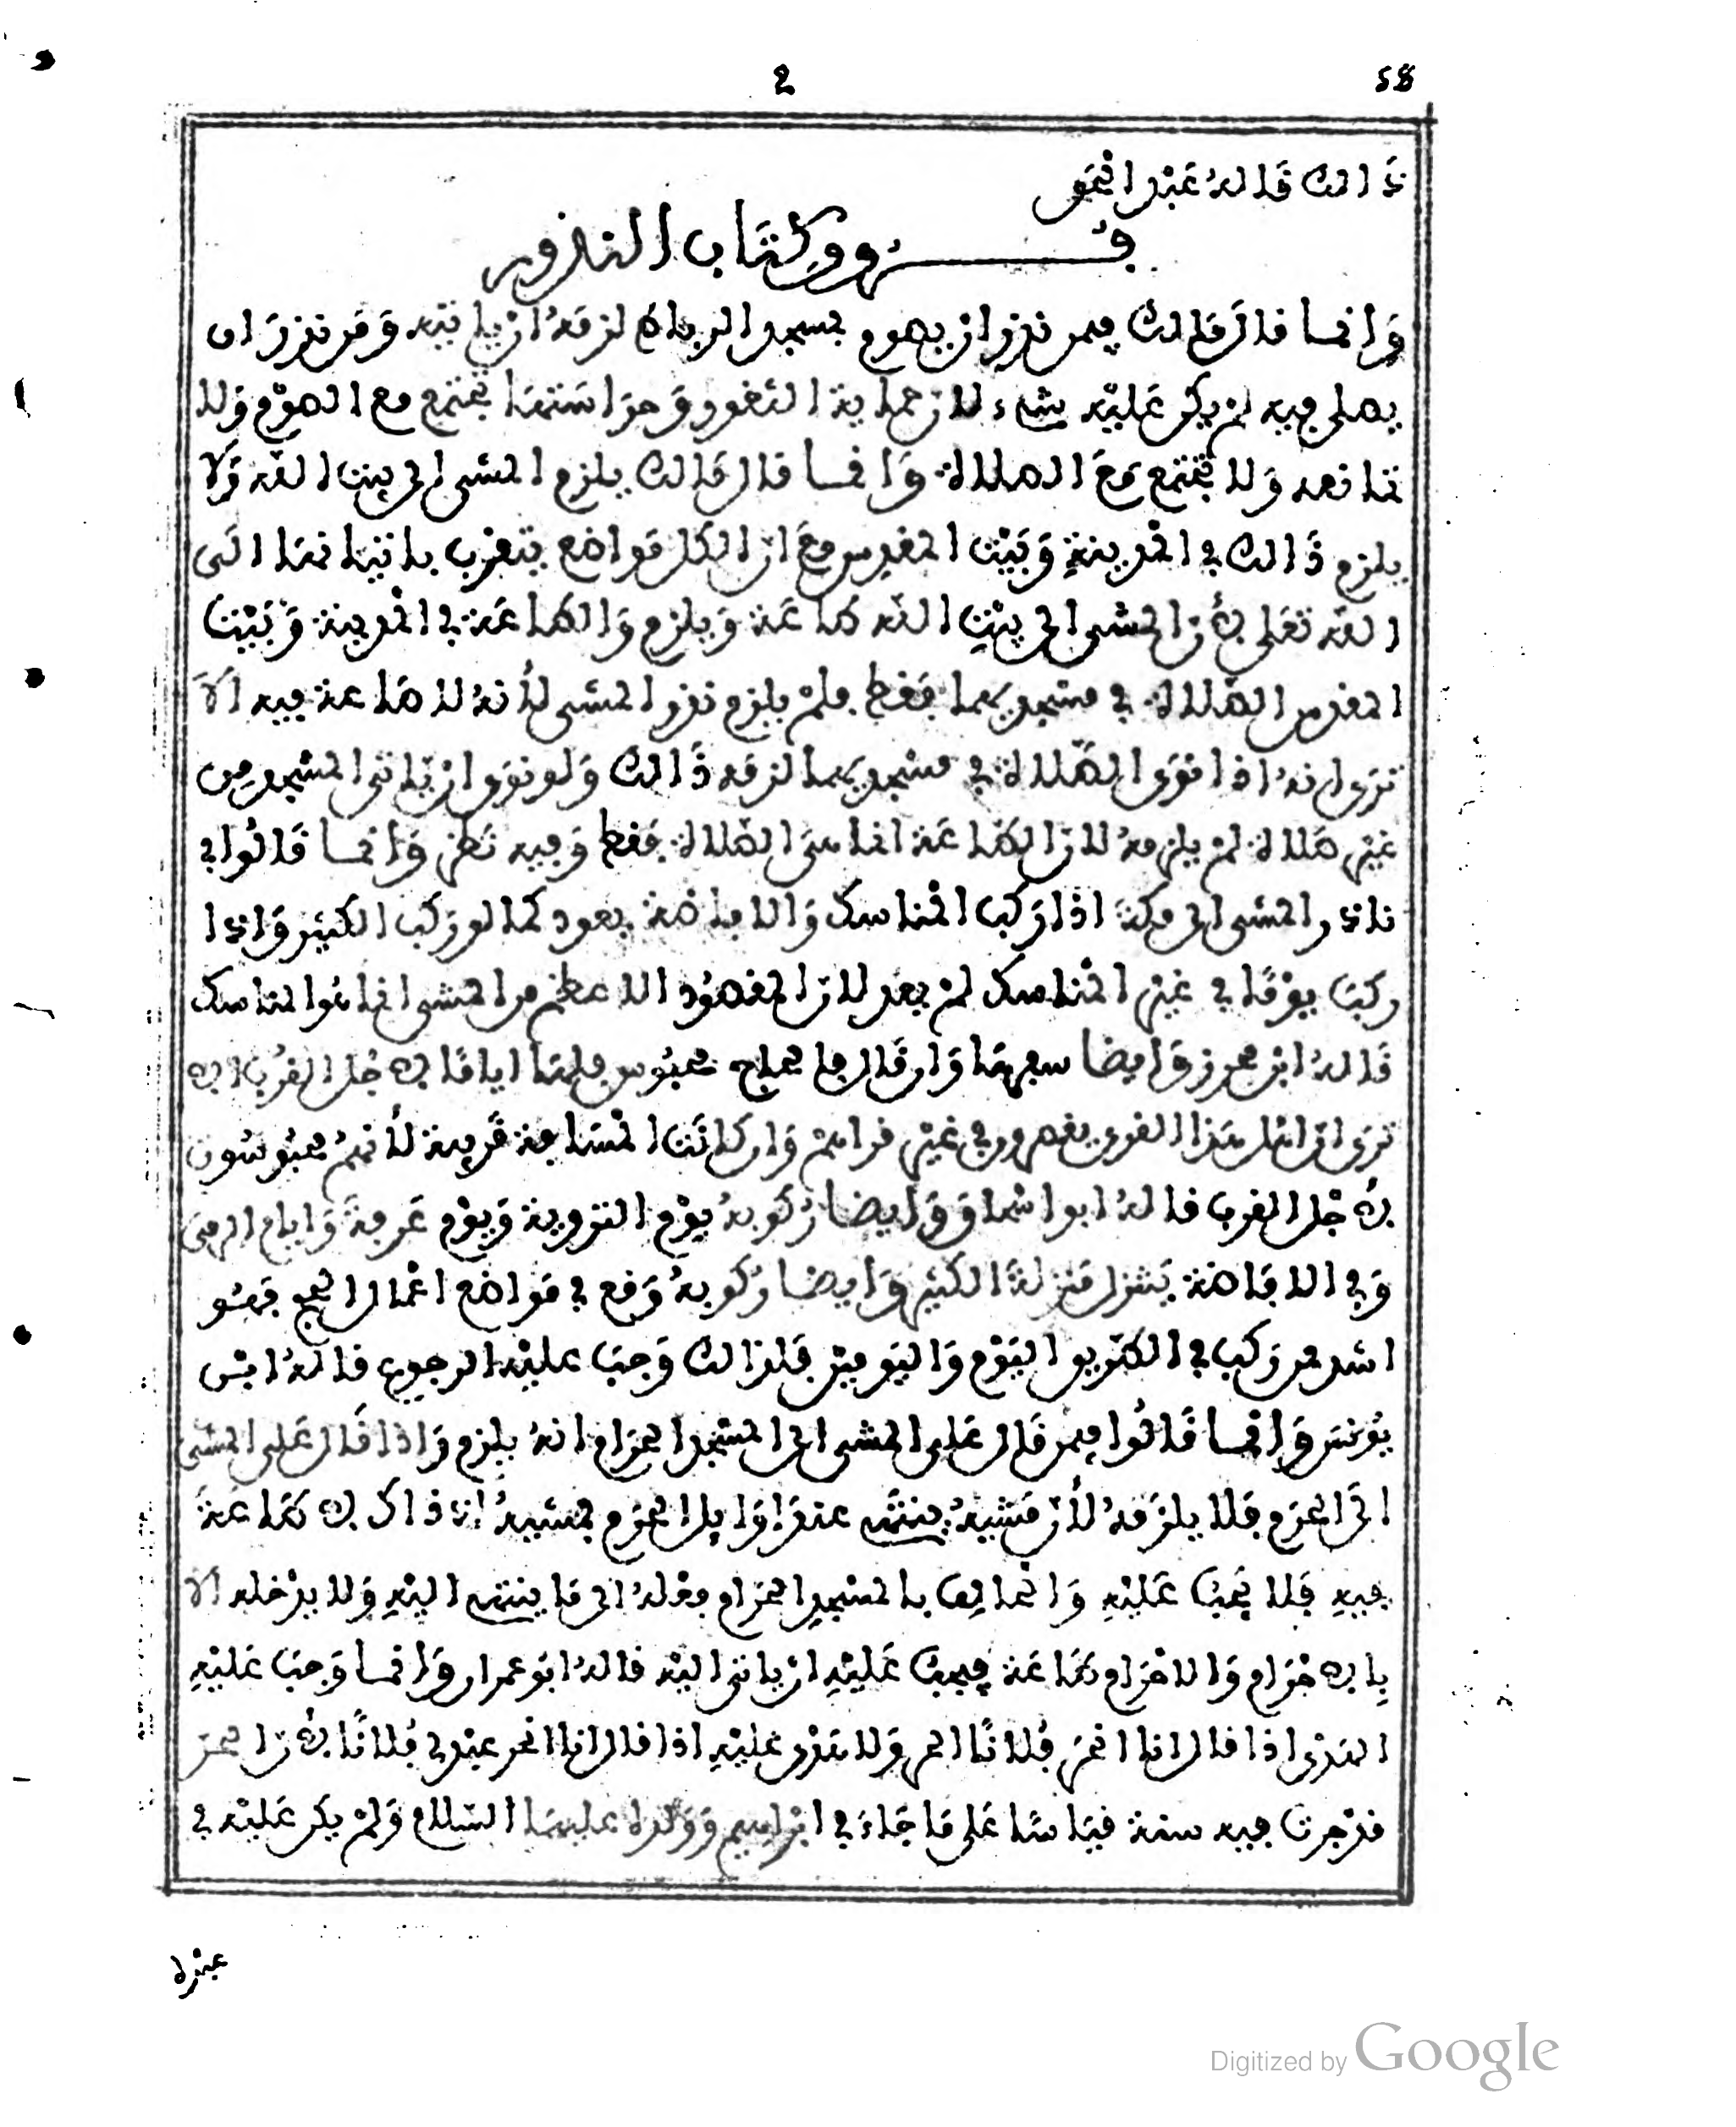 58
2
ذالك قاله عبد الحق
فروق كتاب النذور
وانما قال مالك فيمن نذر ان يصوم بمسجد الرباط لزمه ان ياتيه ومن نذر ان
يصلي فيه لم يكن عليه شيء لان حماية الثغور وحراستها تجتمع مع الصوم ولا
تمانعه ولا تجتمع مع الصلاة وانما قال مالك يلزم المشي الى بيت الله ولا
يلزم ذالك في المدينة وبيت المقدس مع ان الكل مواضع يتقرب باتيانها الى
الله تعلى لأن المشي الى بيت الله طاعة ويلزم والطاعة في المدينة وبيت
المقدس الصلاة في مسجديهما فقط فلم يلزم نذر المشي لأنه لا طاعة فيه الا
ترى انه اذا نوى الصلاة في مسجديهما لزمه ذالك ولو نوى ان ياتي المسجد من
غير صلاة لم يلزمه لان الطاعة انما هي الصلاة فقط وفيه نظر وانما قالوا في
ناذر المشي الى مكة اذا ركب المناسك والافاضة يعود كما لو ركب الكثير واذا
ركب يوما في غير المناسك لم يعد لان المقصود الاعظم من المشي انما هو المناسك
قاله ابن محرز وايضا سفرها وان قال فالحاج محبوس فيها اياما لأجل القرب الا
ترى ان اهل هذا القرى يقصرون في غير قراهم وان كانت المسافة قريبة لأنهم محبوسون
لأجل القرب قاله ابو اسحاق وايضا ركوبه يوم التروية ويوم عرفة وايام الرمي
وفي الافاضة يتنزل منزلة الكثير وايضا ركوبه وقع في مواضع اعمال الحج فهو
اشد ممن ركب في الطريق اليوم واليومين فلذالك وجب عليه الرجوع قاله ابن
يونس وانما قالوا فيمن قال علي المشي الى المسجد الحرام انه يلزم واذا قال علي المشي
الى الحرم فلا يلزمه لأن مشيه ينتهي عند اوايل الحرم بمشيه اذ ذاك لا طاعة
فيه فلا يجب عليه والحالف بالمسجد الحرام فعله الى ما ينتهي اليه ولا يدخله الا
باحرام والاحرام طاعة فيجب عليه ان ياتي اليه قاله ابو عمران وانما وجب عليه
الهدي اذا قال انا انحر فلانا الحر ولا هدي عليه اذا قال انا انحر عبدي فلانا لأن الحر
قد جرت فيه سنة قياسا على ما جاء في ابراهيم وولده عليهما السلام ولم يكن عليه في
عبده
Digitized by Google